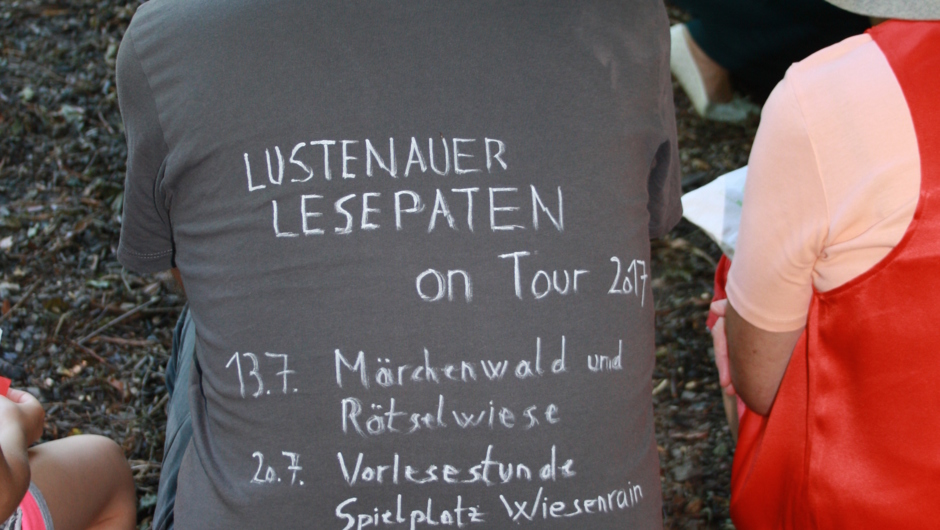 LUSTENAUER
LESEPATEN
on Tour 2017
13.7. Märchenwald und
Rätselwiese
20.7. Vorlesestunde
Spielplatz Wiesenrain